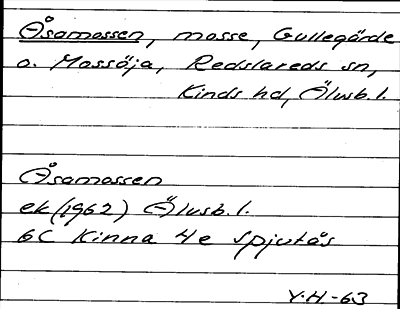 Åsamossen, mosse, Gullegärde
o. Mossöja, Redslareds sn,
Kinds hd, Älvsb. l.
Åsamossen
ek (1962) Älvsb. l.
6C Kinna 4e Spjutås
Y.H.-63